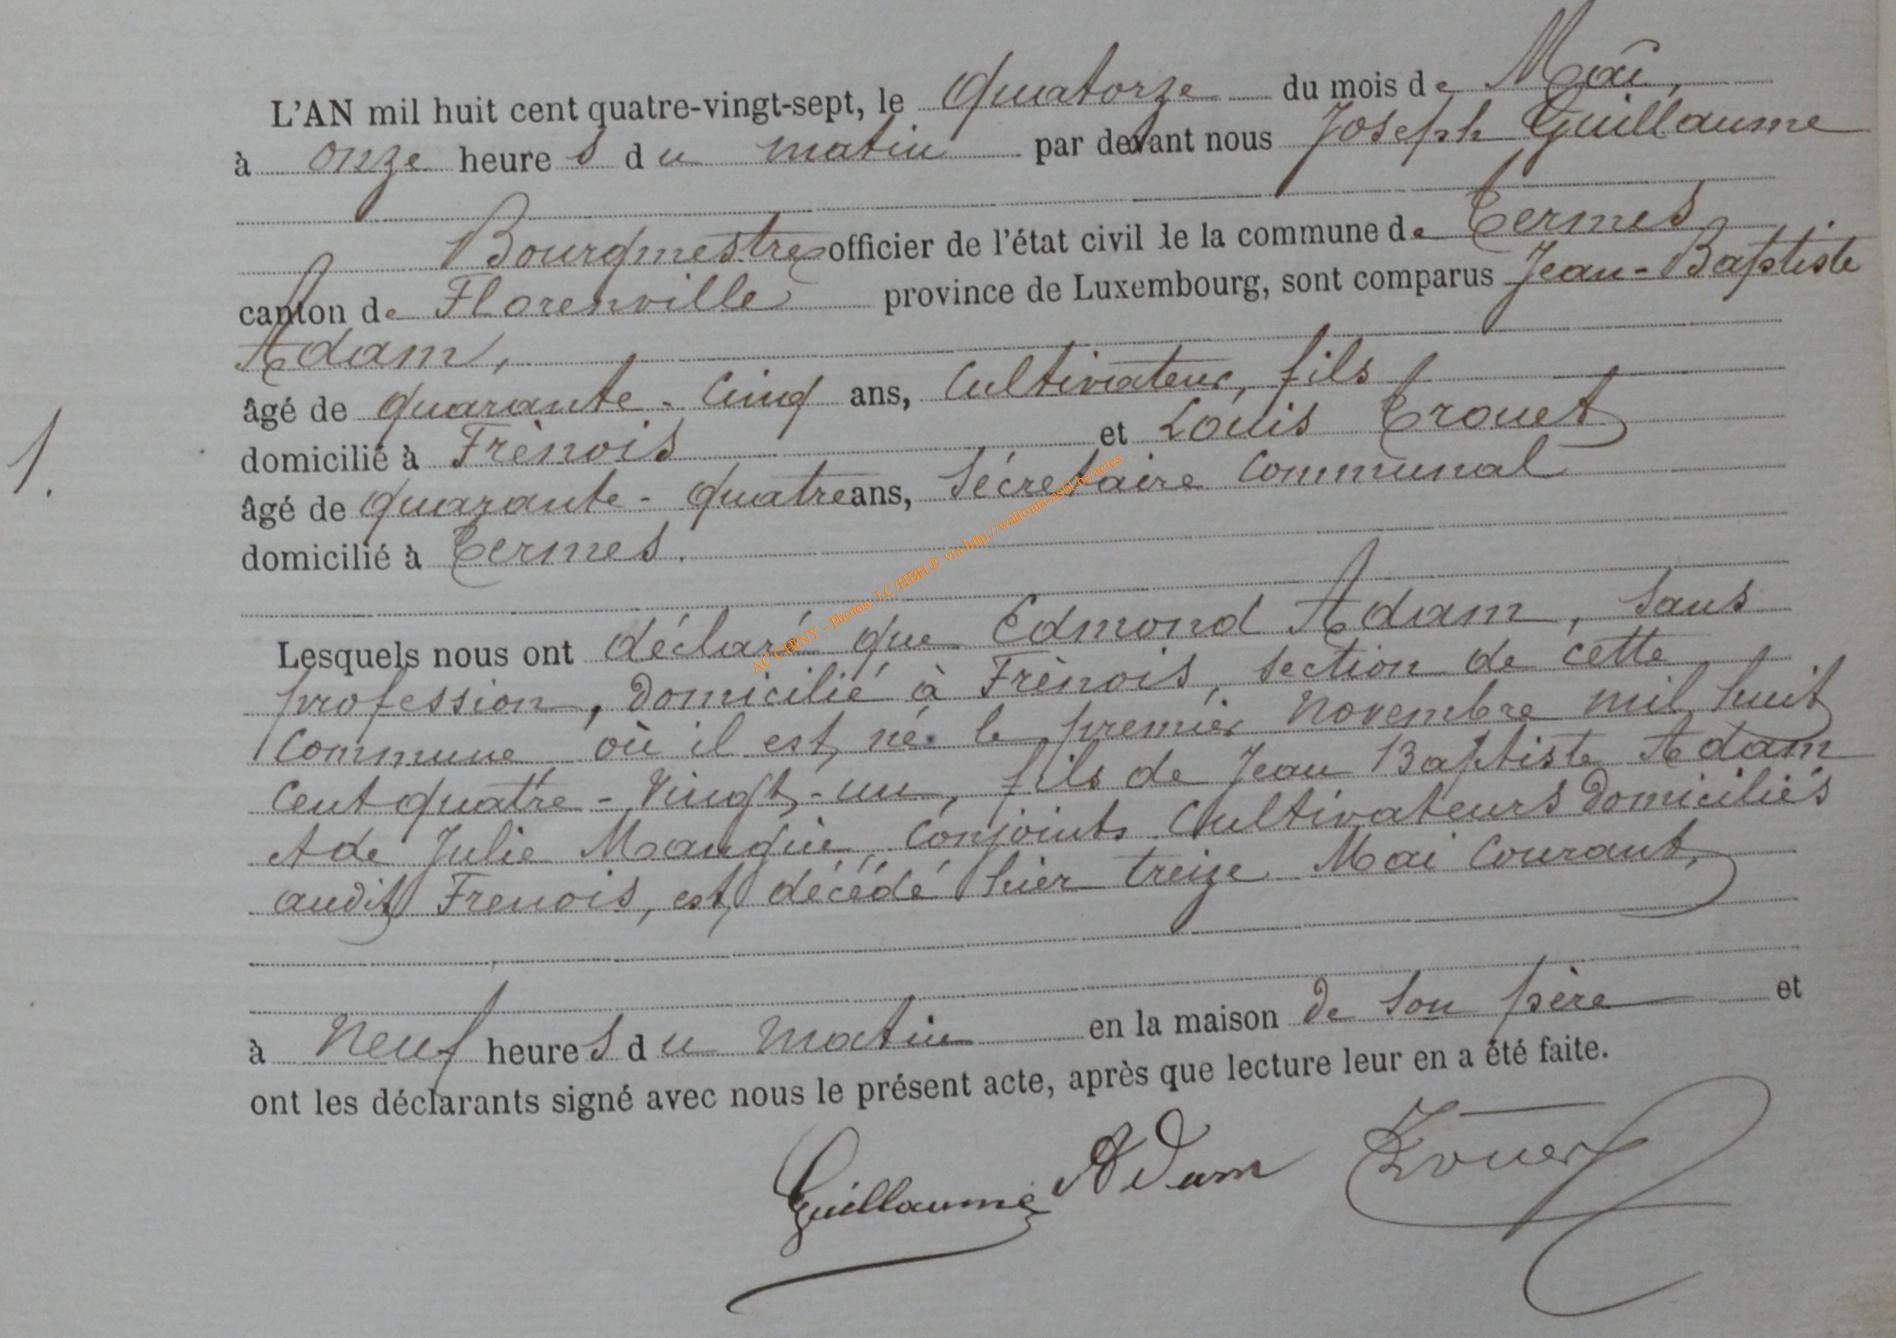 L'AN mil huit cent quatre-vingt-sept, le quatorze du mois de Mai,
à onze heures du matin par devant nous Joseph Guillaume
Bourgmestre officier de l'état civil de la commune de Termes
canton de Florenville province de Luxembourg, sont comparus Jean-Baptiste
Adam,
âgé de quarante-cinq ans, cultivateur, fils
domicilié à Frènois et Louis Trouet
1.
âgé de quarante-quatre ans, sécretaire communal
domicilié à Termes.
Lesquels nous ont déclaré que Edmond Adam, sans
profession, domicilié à Frènois, section de cette
commune, où il est né le premier novembre mil huit
cent quatre-vingt-un, fils de Jean Baptiste Adam
et de Julie Manguin conjoints cultivateurs domiciliés
audit Frenois, est décédé hier treize Mai courant,
à neuf heures du matin en la maison de son père et
ont les déclarants signé avec nous le présent acte, après que lecture leur en a été faite.
Guillaume Adam Trouet